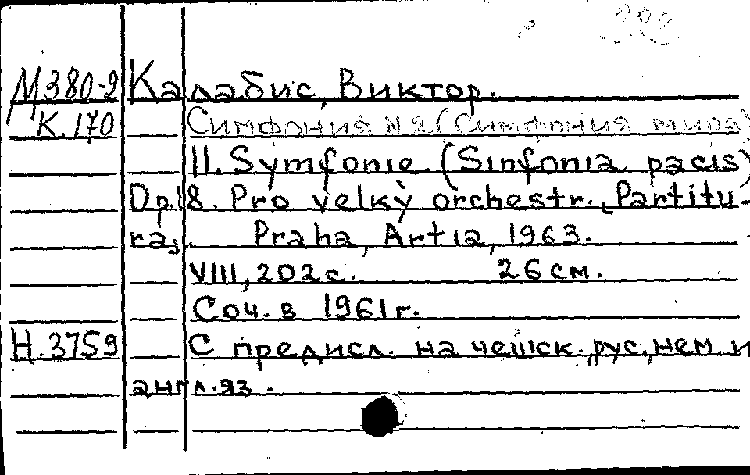 М380-2 Калабис, Виктор.
К.170 Симфония № 2 (Симфония мира)
II. Symfonie. (Sinfonia pacis)
Op.18. Pro velký orchestr. Partitu-
ra. Praha, Artia, 1963.
VIII, 202 с. 26 см.
Соч. в 1961 г.
Н.3759 С предисл. на чешск., рус., нем. и
англ. яз.